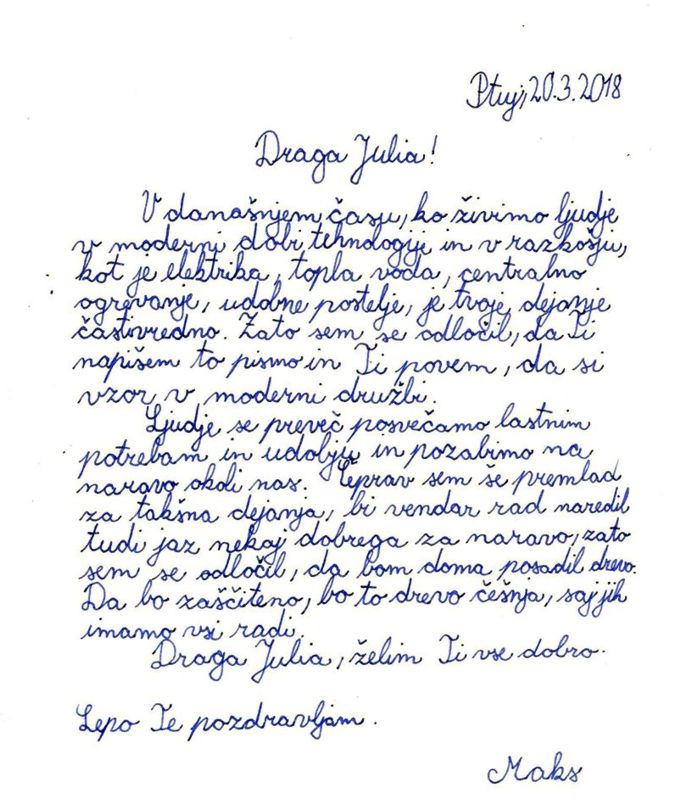 Ptuj, 20.3.2018
Draga Julia!
V današnjem času, ko živimo ljudje
v moderni dobi tehnologije in v razkošju,
kot je elektrika, topla voda, centralno
ogrevanje, udobne postelje, je tvoje dejanje
častivredno. Zato sem se odločil, da Ti
napišem to pismo in Ti povem, da si
vzor v moderni družbi.
Ljudje se preveč posvečamo lastnim
potrebam in udobju in pozabimo na
naravo okoli nas. Čeprav sem še premlad
za takšna dejanja, bi vendar rad naredil
tudi jaz nekaj dobrega za naravo, zato
sem se odločil, da bom doma posadil drevo.
Da bo zaščiteno, bo to drevo češnja, saj jih
imamo vsi radi.
Draga Julia, želim Ti vse dobro.
Lepo Te pozdravljam.
Maks